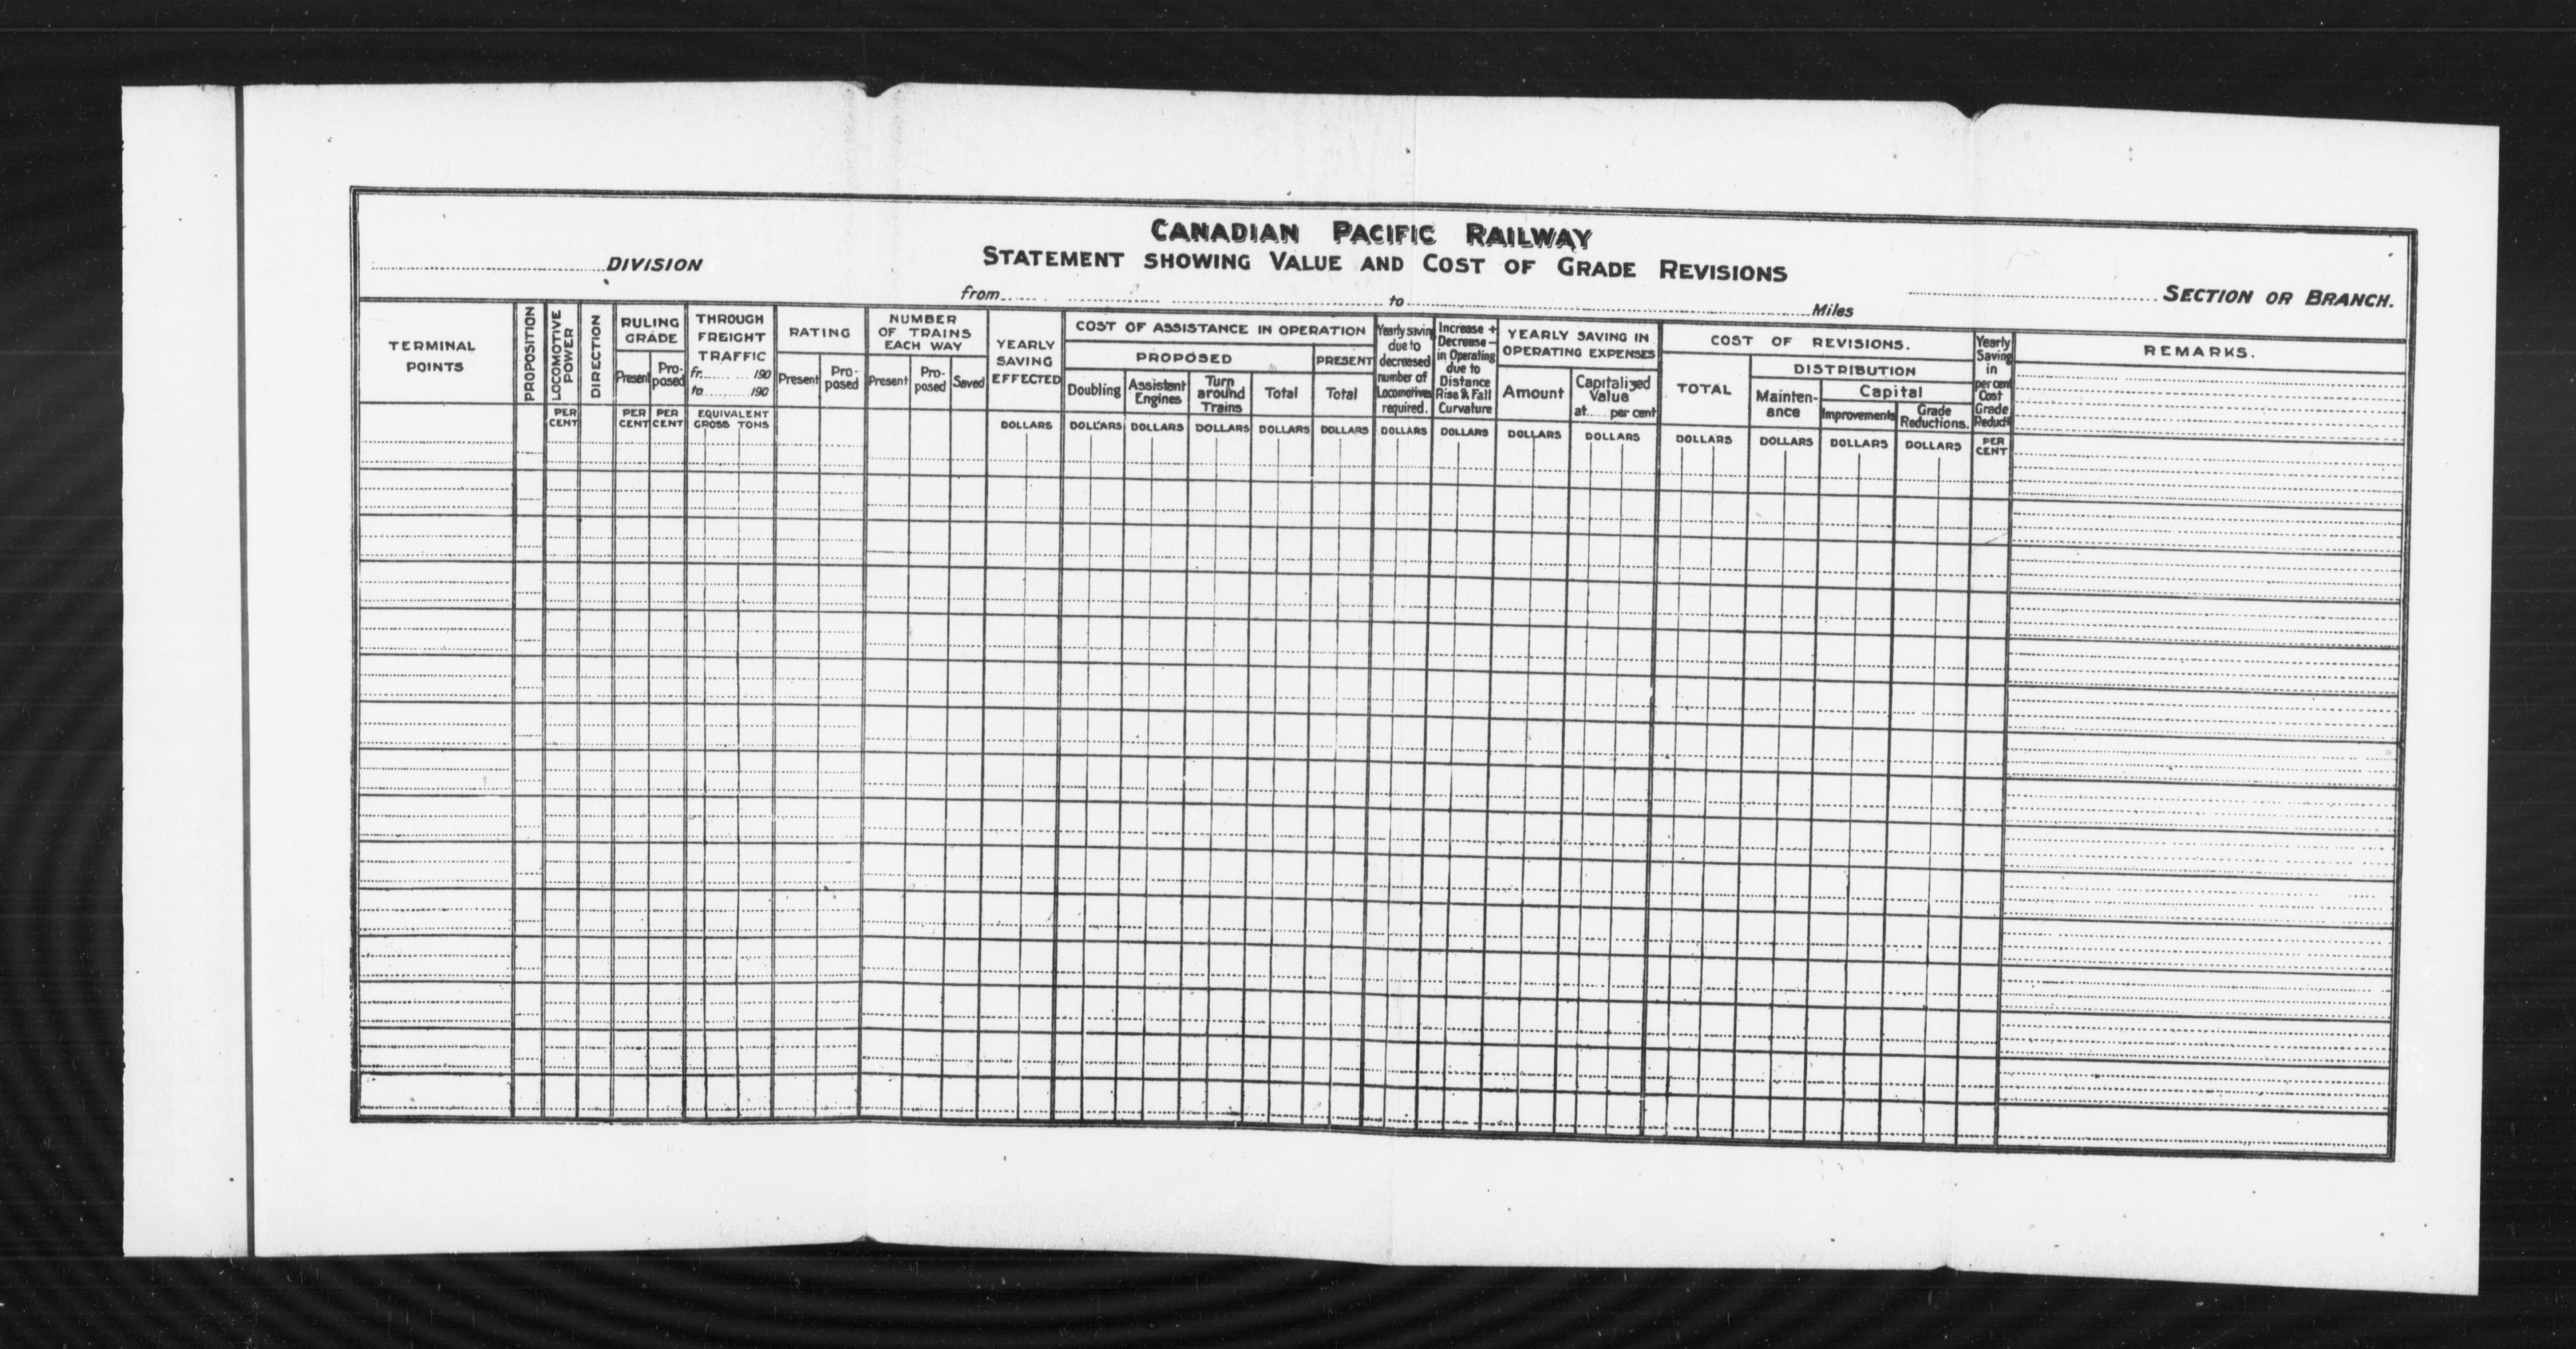 CANADIAN PACIFIC RAILWAY
STATEMENT SHOWING VALUE AND COST OF GRADE REVISIONS
DIVISION
from to Miles
SECTION OR BRANCH.
TERMINAL
POINTS
PROPOSITION
LOCOMOTIVE
POWER
PER
CENT
DIRECTION
RULING
GRADE
Present
Pro-
posed
PER
CENT
PER
CENT
THROUGH
FREIGHT
TRAFFIC
fr. 190
to 190
EQUIVALENT
GROSS TONS
RATING
Present
Pro-
posed
NUMBER
OF TRAINS
EACH WAY
Present
Pro-
posed
Saved
YEARLY
SAVING
EFFECTED
DOLLARS
COST OF ASSISTANCE IN OPERATION
PROPOSED
Doubling
DOLLARS
Assistant
Engines
DOLLARS
Turn
around
Trains
DOLLARS
Total
DOLLARS
PRESENT
Total
DOLLARS
Yearly saving
due to
decreased
number of
Locomotives
required.
DOLLARS
Increase +
Decrease –
in Operating
due to
Distance
Rise & Fall
Curvature
DOLLARS
YEARLY SAVING IN
OPERATING EXPENSES
Amount
DOLLARS
Capitalized
Value
at per cent
DOLLARS
COST OF REVISIONS.
TOTAL
DOLLARS
DISTRIBUTION
Mainten-
ance
DOLLARS
Capital
Improvements
DOLLARS
Grade
Reductions.
DOLLARS
Yearly
Saving
in
per cent
Cost
Grade
Reduct.
PER
CENT
REMARKS.